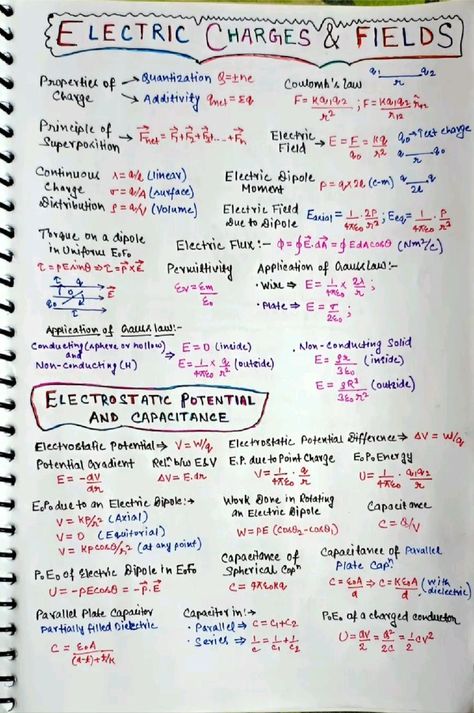 ELECTRIC CHARGES & FIELDS
Properties of Charge → Quantization Q=±ne
→ Additivity qnet = Σq
Coulomb's law
q1 q2
r
F = Kq1q2/r² ; F = Kq1q2/r12² r̂12
Principle of Superposition → F⃗net = F⃗1+F⃗2+F⃗3+...+F⃗n
Electric Field → E = F/q0 = Kq/r²
q0 → Test charge
q q0
r
Continuous Charge Distribution
λ = q/l (linear)
σ = q/A (surface)
ρ = q/V (volume)
Electric Dipole Moment
P = q×2l (c-m)
q q
2l
Electric Field Due to Dipole
Eaxial = 1/4πε0 · 2P/r³ ; Eeq = 1/4πε0 · P/r³
Torque on a dipole in Uniform E.F.
τ = PE sinθ ⇒ τ⃗ = P⃗×E⃗
E⃗
Electric Flux:- Φ = ∮E⃗.dA⃗ = ∮EdAcosθ (Nm²/c)
Permittivity
εr = εm/ε0
Application of Gauss law:-
• Wire ⇒ E = 1/4πε0 × 2λ/r ;
• Plate ⇒ E = σ/2ε0 ;
Application of Gauss law:-
Conducting (sphere or hollow) and Non-Conducting (H)
⇒ E = 0 (inside)
⇒ E = 1/4πε0 × q/r² (outside)
• Non-Conducting Solid
E = ρr/3ε0 (inside)
E = ρR³/3ε0r² (outside)
ELECTROSTATIC POTENTIAL AND CAPACITANCE
Electrostatic Potential → V = W/q
Electrostatic Potential Difference ⇒ ΔV = W/q
Potential Gradient
E = -dV/dr
Relⁿ b/w E&V
ΔV = E.dr
E.P. due to Point Charge
V = 1/4πε0 · q/r
E.P. Energy
U = 1/4πε0 · q1q2/r
E.P. due to an Electric Dipole:→
V = KP/r² (Axial)
V = 0 (Equitorial)
V = KPcosθ/r² (at any point)
Work Done in Rotating an Electric Dipole
W = PE (cosθ2 - cosθ1)
Capacitance
C = Q/V
P.E. of Electric Dipole in E.F.
U = -PEcosθ = -P⃗.E⃗
Capacitance of Spherical Capⁿ
C = 4πε0
Capacitance of Parallel Plate Capⁿ
C = ε0A/d ⇒ C = Kε0A/d (with dielectric)
Parallel Plate Capacitor
Partially filled Dielectric
C = ε0A/(d-t)+t/K
Capacitor in:→
• Parallel → C = C1+C2
• Series → 1/C = 1/C1 + 1/C2
P.E. of a charged conductor
U = QV/2 = Q²/2C = 1/2 CV²